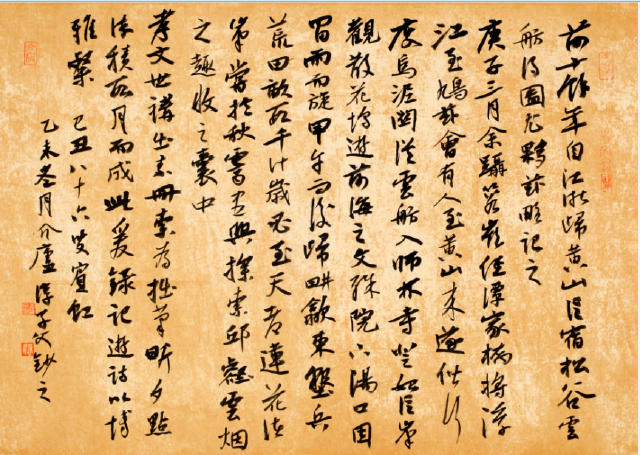 前十餘年自江浙歸黄山信宿松谷雲
舫得圖略記之
庚子三月余躡經潭家橋將浮
江至鳩兹會有人至黄山来遂偕行
度烏泥關從雲舫入師林寺登始信峯
觀散花塢遊前海之文殊院下湯口因
冒雨而旋甲午以後歸畊歙東墾兵
荒田畝千計歲必至天都蓮花諸
峯當於秋霽興探索邱壑雲烟
之趣收之囊中
孝文世講出素冊索為拙筆夕點
積數月而成此爰錄記遊詩以博
雅粲 己丑八十六叟賓虹
乙未冬月介廬淳子文鈔之